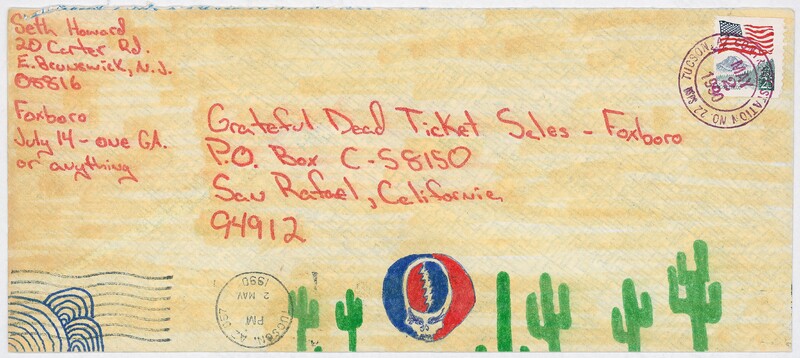 Seth Howard
20 Carter Rd.
E. Brunswick, N.J.
08816
Foxboro
July 14 - one GA.
or anything
Grateful Dead Ticket Sales - Foxboro
P.O. Box C-S8150
San Rafael, California
94912
TUCSON, AZ
STATION NO. 22
MAY
2
1990
TUCSON AZ 857
PM
2 MAY
1990